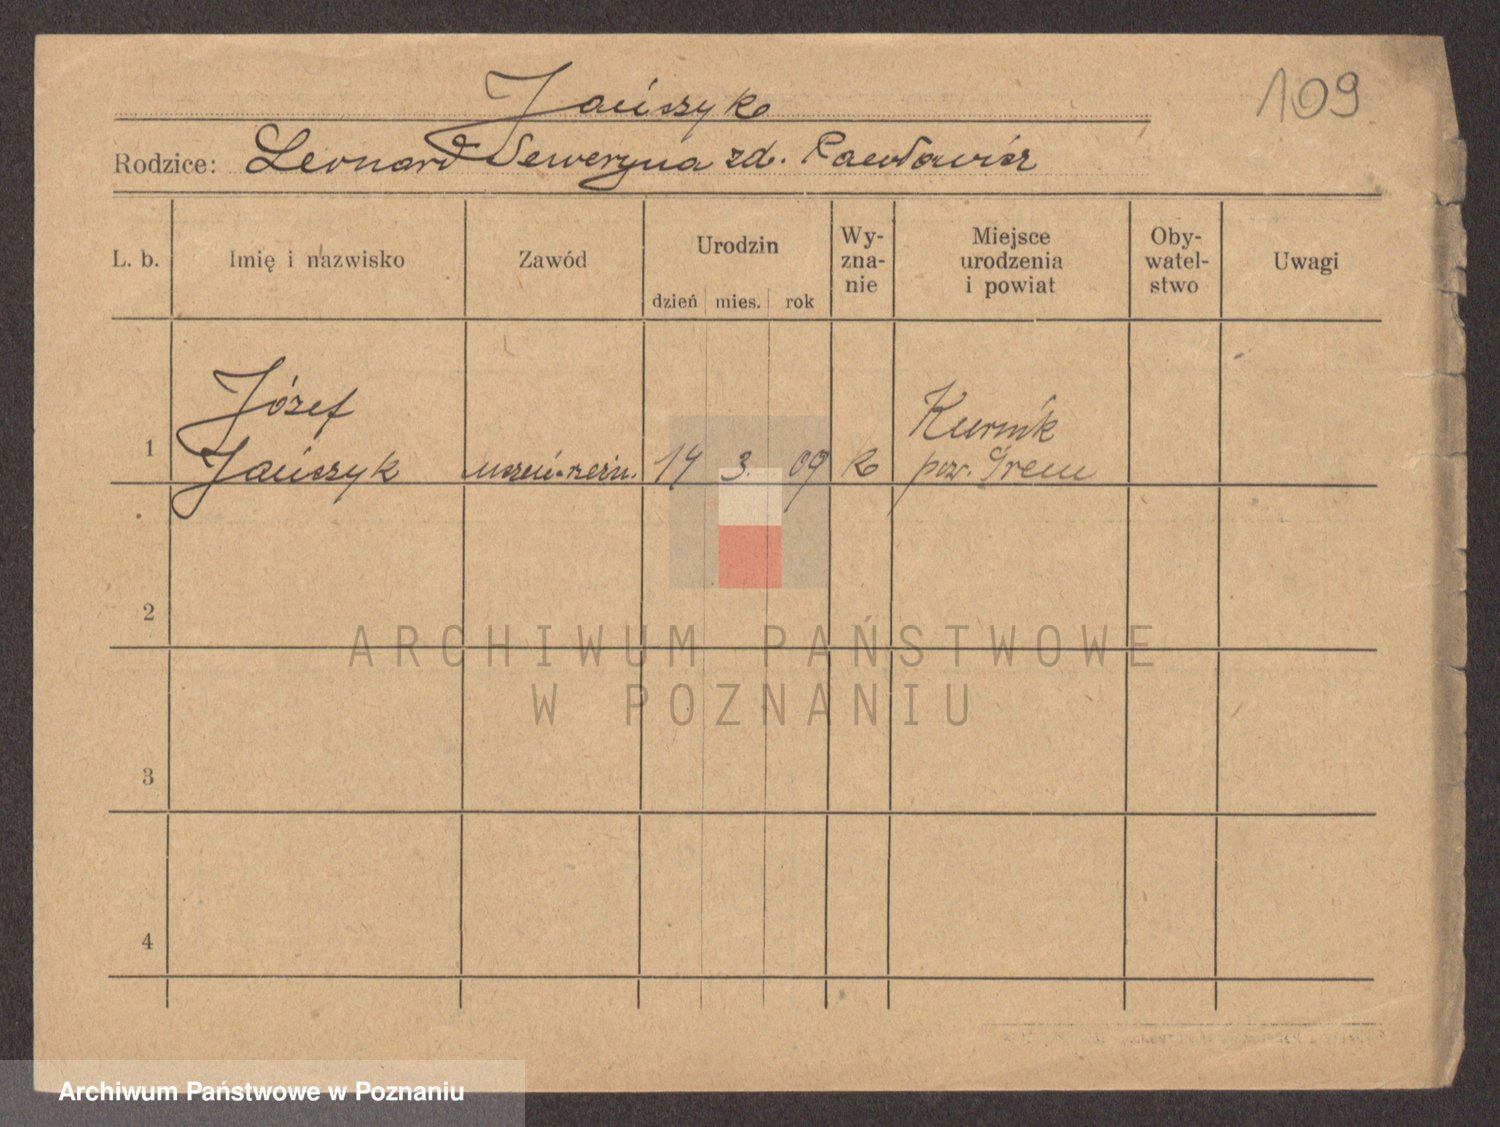 109
Jańczyk
Rodzice: Leonard Seweryna zd. Pawłowicz
L. b. Imię i nazwisko Zawód Urodzin dzień mies. rok Wy-zna-nie Miejsce urodzenia i powiat Oby-watel-stwo Uwagi
1 Józef Jańczyk 14 3. 09 k Kurnik pow. Śrem
2
3
4
ARCHIWUM PAŃSTWOWE
W POZNANIU
Archiwum Państwowe w Poznaniu